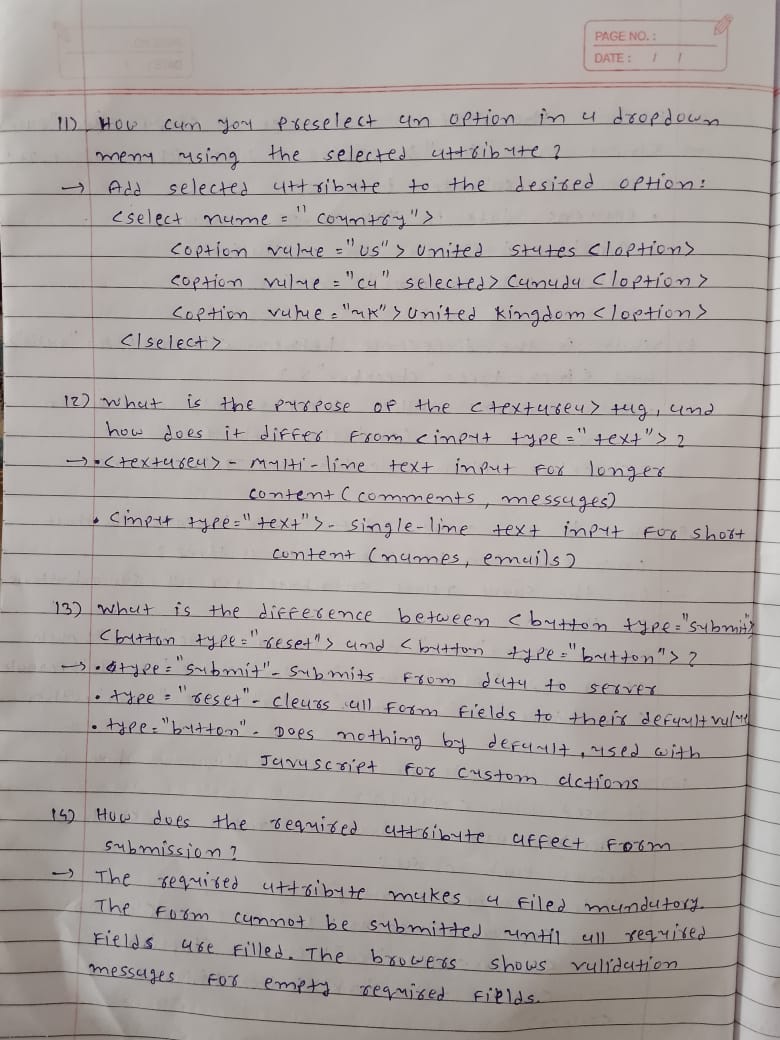 PAGE NO. :
DATE : / /
11) How can you preselect an option in a dropdown
menu using the selected attribute ?
→ Add selected attribute to the desired option :
<select name = "country">
<option value = "us"> United states </option>
<option value = "ca" selected> Canada </option>
<option value = "uk"> United Kingdom </option>
</select>
12) what is the purpose of the <textarea> tag, and
how does it differ from <input type = "text"> ?
→ • <textarea> - multi-line text input for longer
content (comments, messages)
• <input type = "text"> - single-line text input for short
content (names, emails)
13) what is the difference between <button type = "submit">
<button type = "reset"> and <button type = "button"> ?
→ • type = "submit" - submits from data to server
• type = "reset" - clears all form fields to their default value
• type = "button" - Does nothing by default, used with
Javascript for custom actions
14) How does the required attribute affect form
submission ?
→ The required attribute makes a filed mandatory.
The form cannot be submitted until all required
fields are filled. The browers shows validation
messages for empty required fields.